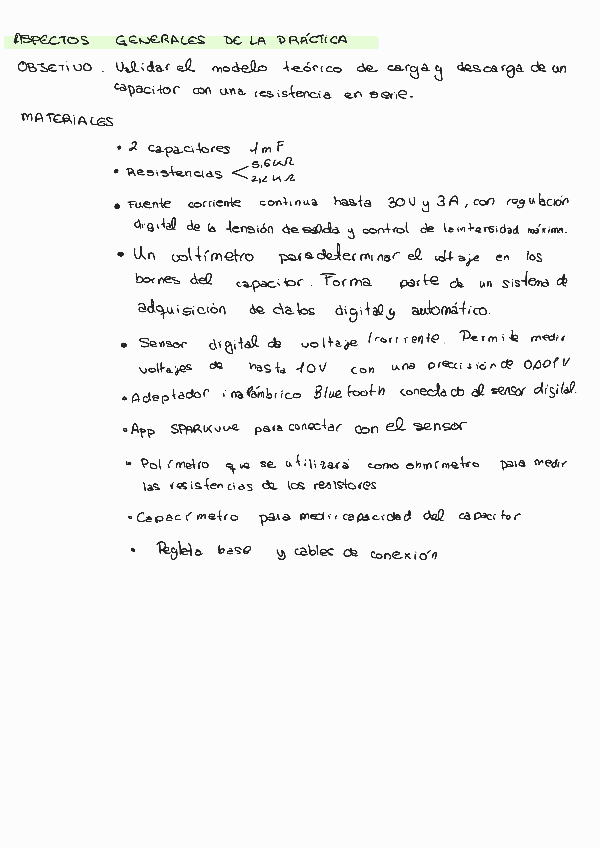 ASPECTOS GENERALES DE LA PRÁCTICA
OBJETIVO. Validar el modelo teórico de carga y descarga de un
capacitor con una resistencia en serie.
MATERIALES
• 2 capacitores 1mF
• Resistencias < 5,6 kΩ
2,2 kΩ
• Fuente corriente continua hasta 30V y 3A, con regulación
digital de la tensión de salida y control de la intensidad máxima.
• Un voltímetro para determinar el voltaje en los
bornes del capacitor. Forma parte de un sistema de
adquisición de datos digital y automático.
• Sensor digital de voltaje/corriente. Permite medir
voltajes de hasta 10V con una precisión de 0,001V
• Adaptador inalámbrico Bluetooth conectado al sensor digital.
• App SPARKvue para conectar con el sensor
• Polímetro que se utilizará como ohmímetro para medir
las resistencias de los resistores
• Capacímetro para medir capacidad del capacitor
• Regleta base y cables de conexión